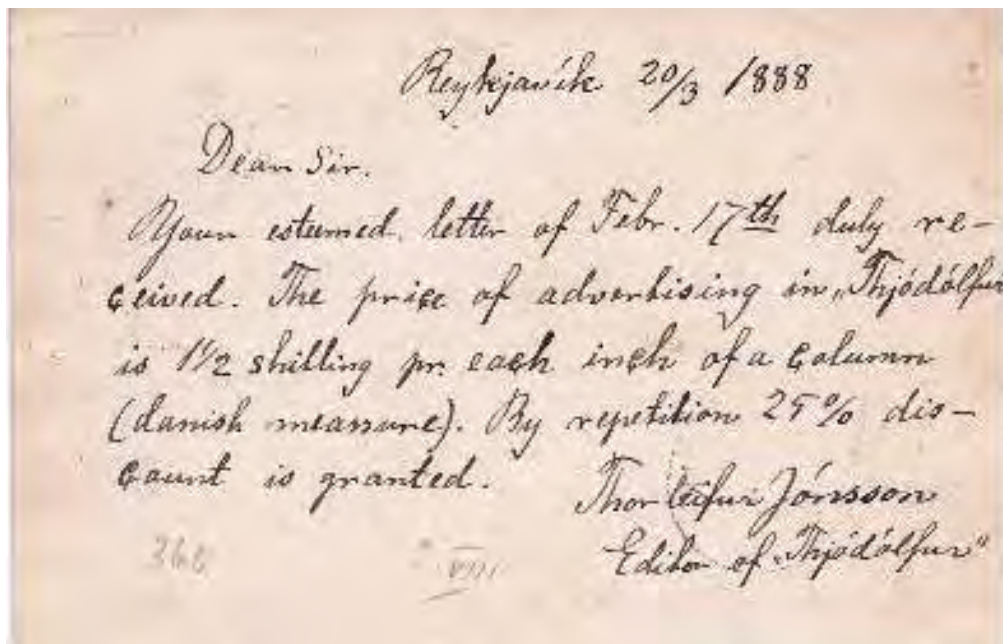 Reykjavík 20/3 1888
Dear Sir.
Your esteemed letter of Febr. 17th duly re-
ceived. The price of advertising in „Thjódólfur
is 1 1/2 shilling pr. each inch of a column
(danish measure). By repetition 25% dis-
count is granted.
Thorleifur Jónsson
Editor of „Thjódólfur"
366
VIII